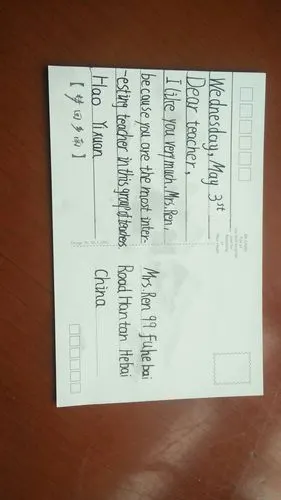 Wednesday, May 3st
Dear teacher,
I like you very much, Mrs. Ren,
because you are the most inter-
-esting teacher in this group of teachers
Hao Yixuan
Mrs. Ren 99 Fuhe bai
Road Hantan Hebai
China